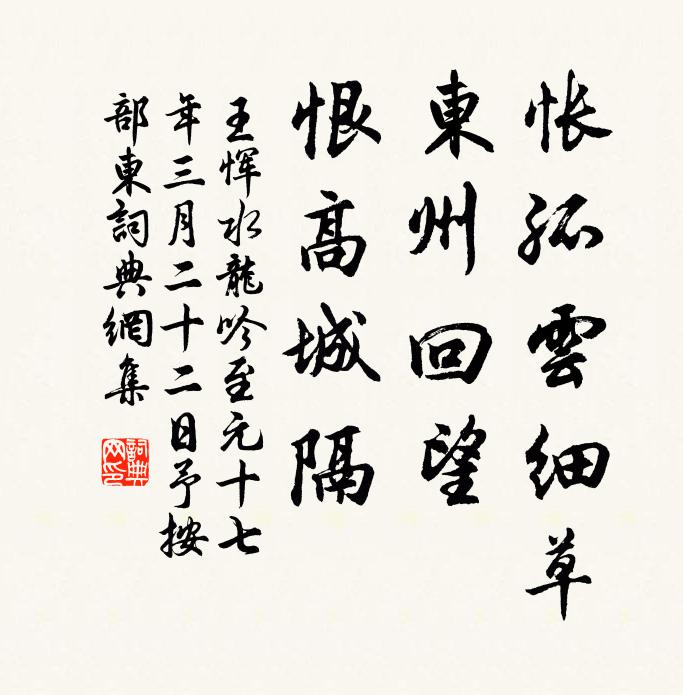 悵孤雲細草
東州回望
恨高城隔
王惲水龍吟至元十七
年三月二十二日予按
部東詞典網集
詞典網印